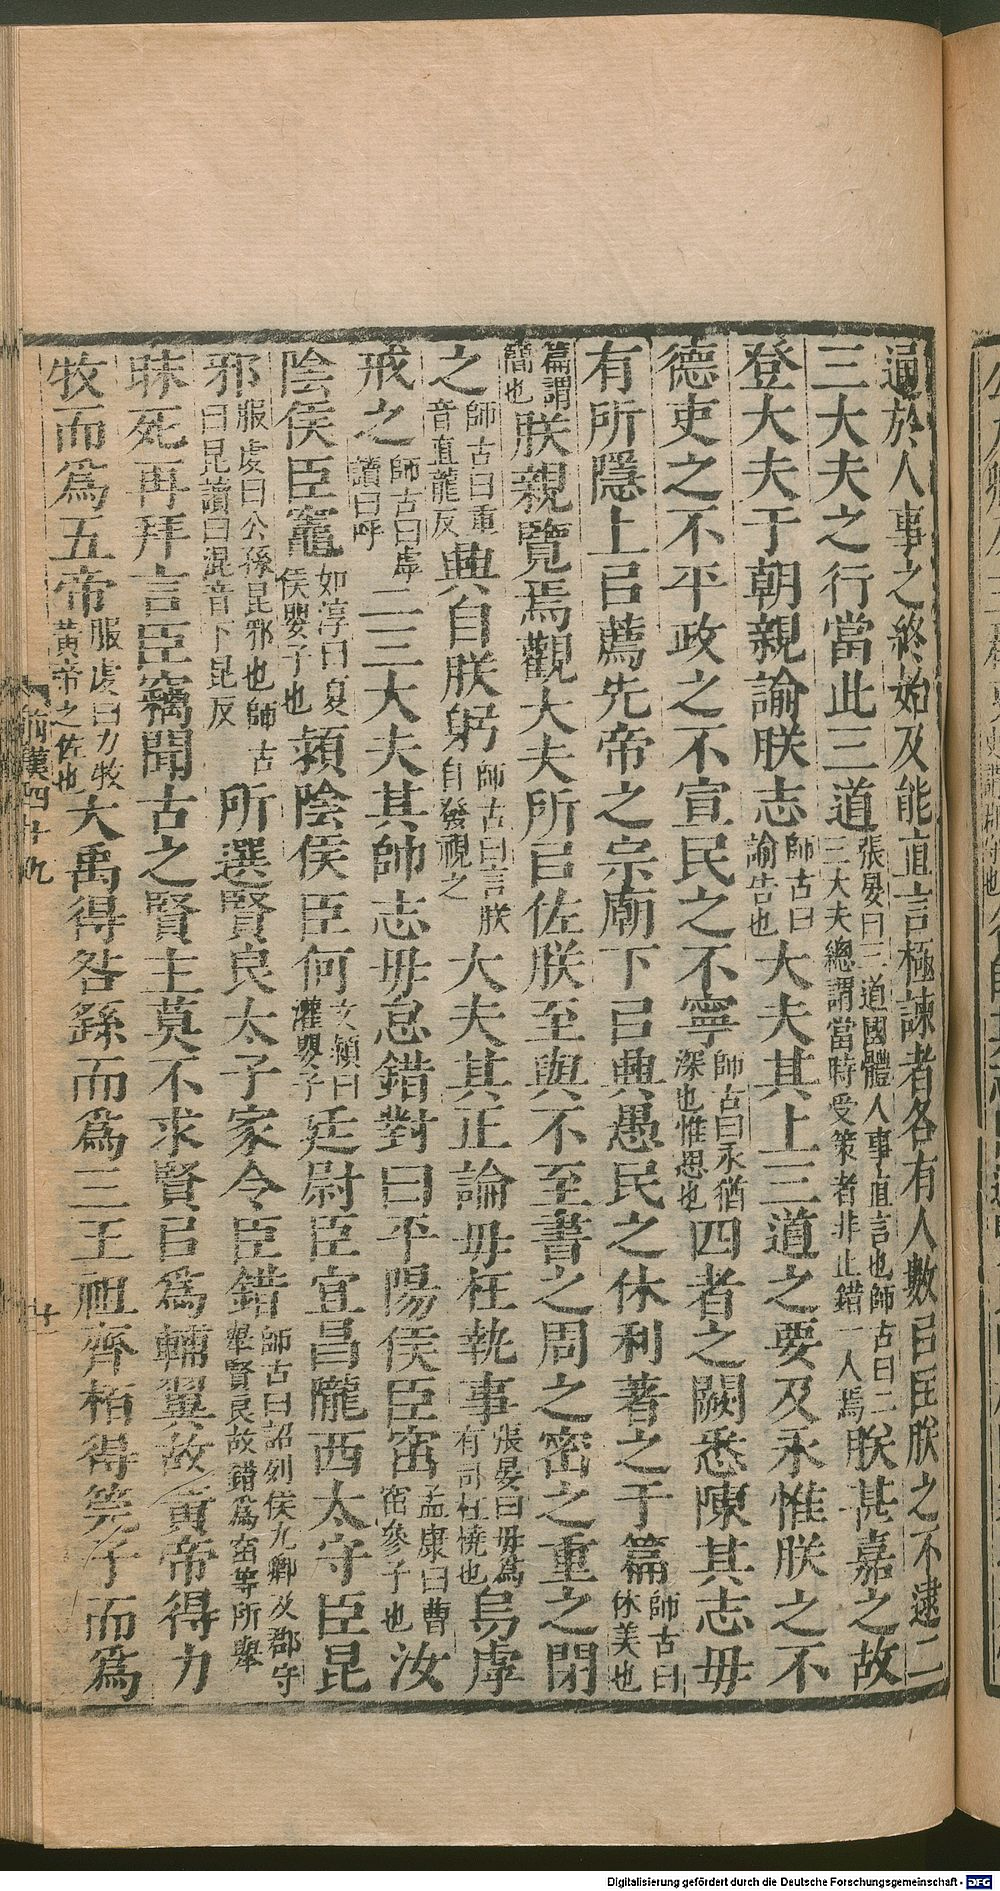 通於人事之終始及能直言極諫者各有人數㠯匡朕之不逮二
三大夫之行當此三道張晏曰三道國體人事直言也師古曰二三大夫總謂當時受策者非止錯一人焉朕甚嘉之故
登大夫于朝親諭朕志師古曰諭告也大夫其上三道之要及永惟朕之不
德吏之不平政之不宣民之不寧師古曰永猶深也惟思也四者之闕悉陳其志毋
有所隱上㠯薦先帝之宗廟下㠯興愚民之休利著之于篇師古曰休美也
篇謂簡也朕親覽焉觀大夫所㠯佐朕至與不至書之周之密之重之閉
之師古曰重音直龍反興自朕躬師古曰言朕自發視之大夫其正論毋枉執事張晏曰毋為有司枉橈也烏虖
戒之師古曰虖讀曰呼二三大夫其帥志毋怠錯對曰平陽侯臣窋孟康曰曹窋參子也汝
陰侯臣竈如淳曰夏侯嬰子也潁陰侯臣何文穎曰灌嬰子廷尉臣宜昌隴西太守臣昆
邪服虔曰公孫昆邪也師古曰昆讀曰混音下昆反所選賢良太子家令臣錯師古曰詔列侯九卿及郡守舉賢良故錯為窋等所舉
昧死再拜言臣竊聞古之賢主莫不求賢㠯為輔翼故黃帝得力
牧而為五帝服虔曰力牧黃帝之佐也大禹得咎繇而為三王祖齊桓得筦子而為
前漢四十九
廿一
Digitalisierung gefördert durch die Deutsche Forschungsgemeinschaft - DFG